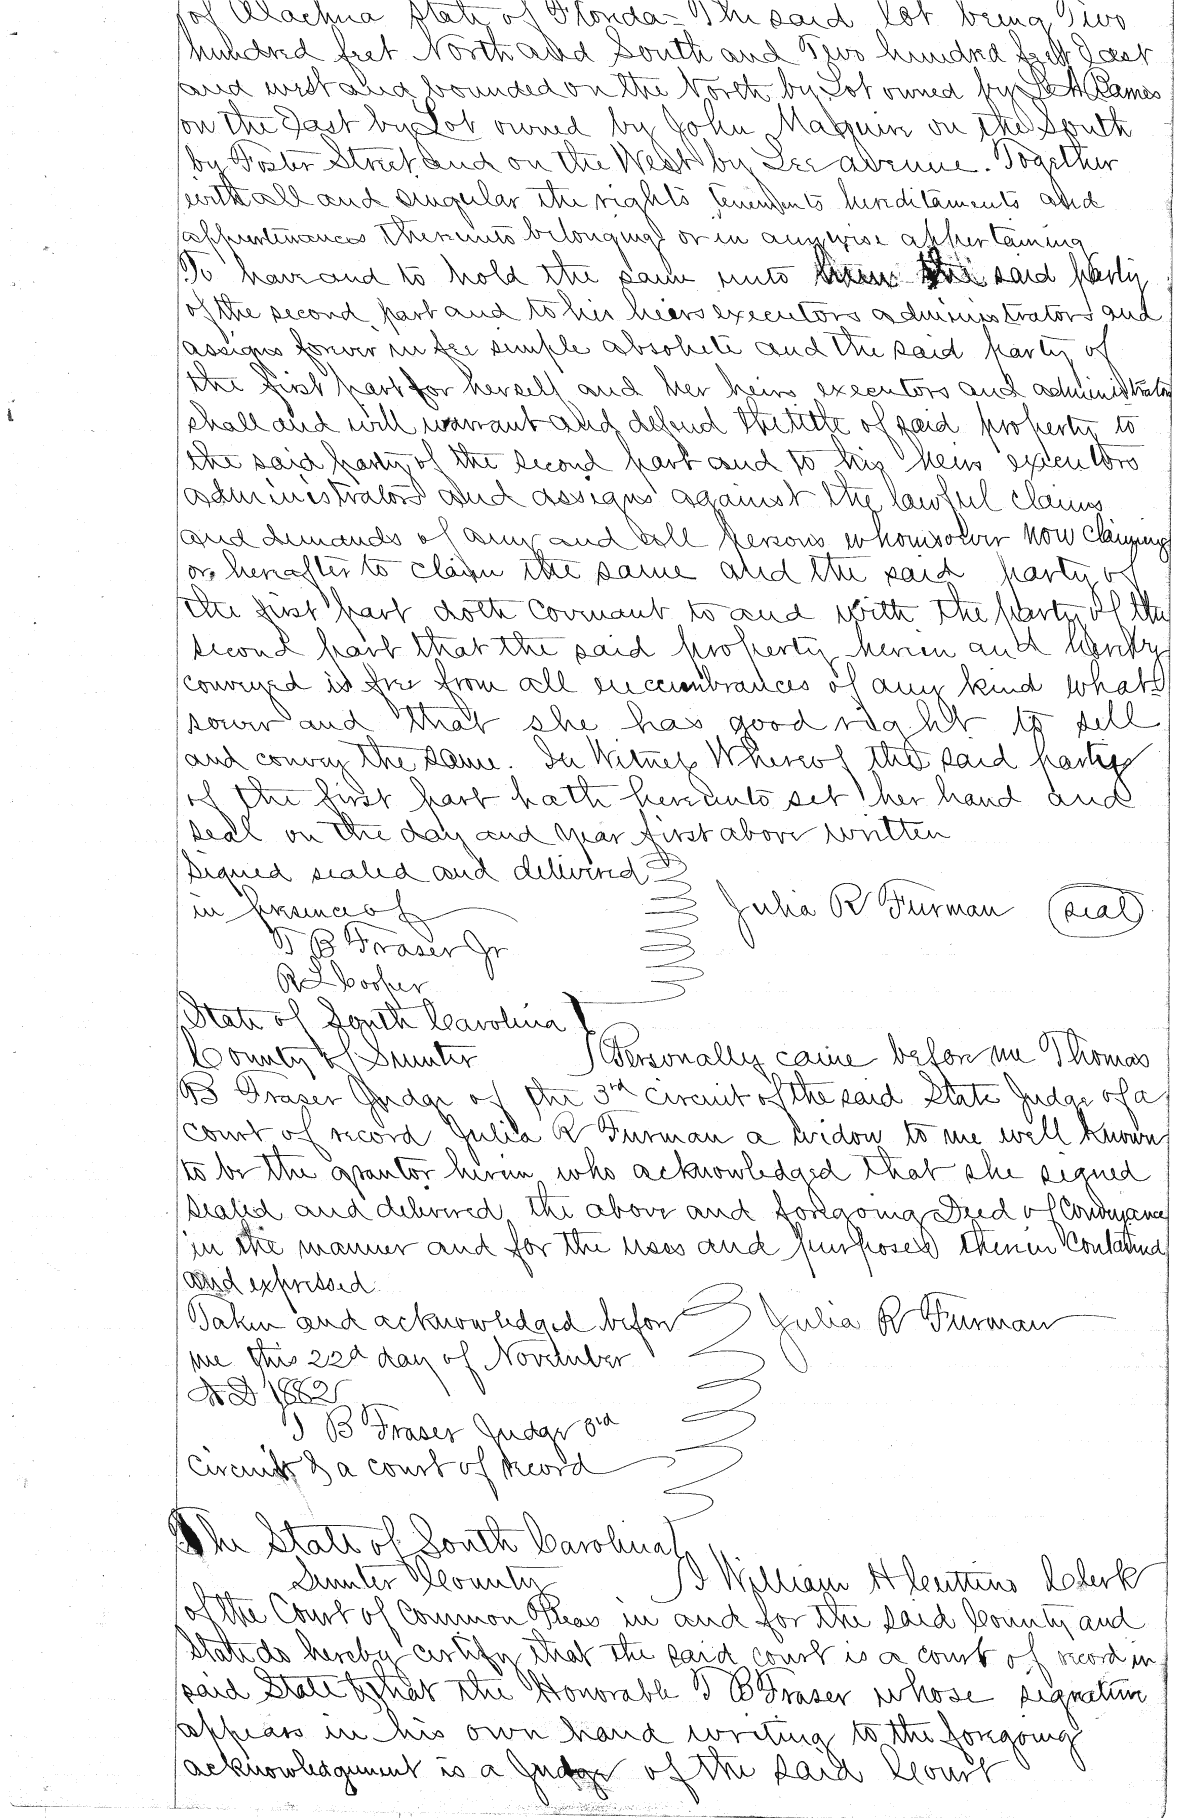 of Alachua State of Florida - The said lot being Two
hundred feet North and South and Two hundred feet East
and west and bounded on the North by Lot owned by
on the East by Lot owned by John Maguire on the South
by Foster Street and on the West by Lee avenue. Together
with all and singular the rights tenements hereditaments and
appurtenances thereunto belonging or in anywise appertaining
To have and to hold the same unto him the said party
of the second part and to his heirs executors administrators and
assigns forever in fee simple absolute and the said party of
the first part for herself and her heirs executors and administrators
shall and will warrant and defend the title of said property to
the said party of the second part and to his heirs executors
administrators and assigns against the lawful claims
and demands of any and all persons whomsoever now claiming
or hereafter to claim the same and the said party of
the first part doth covenant to and with the party of the
second part that the said property herein and hereby
conveyed is free from all encumbrances of any kind what
soever and that she has good right to sell
and convey the same. In Witness Whereof the said party
of the first part hath hereunto set her hand and
seal on the day and year first above written
Signed sealed and delivered
in presence of
Julia R Furman (seal)
T B Fraser Jr
R L Cooper
State of South Carolina
County of Sumter Personally came before me Thomas
B Fraser Judge of the 3rd circuit of the said State Judge of a
court of record Julia R Furman a widow to me well known
to be the grantor herein who acknowledged that she signed
sealed and delivered the above and foregoing Deed of Conveyance
in the manner and for the uses and purposes therein contained
and expressed
Taken and acknowledged before Julia R Furman
me this 22d day of November
A D 1882
T B Fraser Judge 3rd
circuit & a court of record
The State of South Carolina
Sumter County I William H Cuttino Clerk
of the Court of Common Pleas in and for the said County and
State do hereby certify that the said court is a court of record in
said State & that the Honorable T B Fraser whose signature
appears in his own hand writing to the foregoing
acknowledgement is a Judge of the said Court